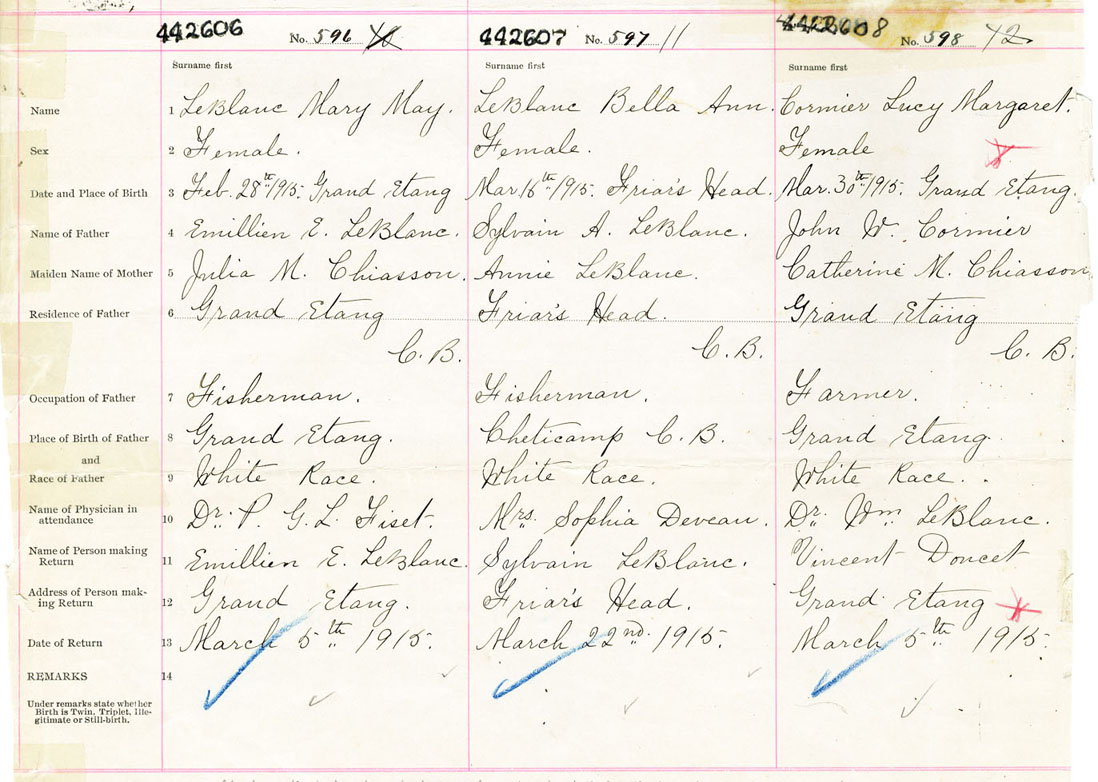 442606 No. 596 442607 No. 597 11 442608 No. 598 42
Surname first Surname first Surname first
Name 1 LeBlanc Mary May. LeBlanc Bella Ann. Cormier Lucy Margaret.
Sex 2 Female. Female. Female
Date and Place of Birth 3 Feb. 28th 1915. Grand Etang Mar. 16th 1915. Friar's Head. Mar. 30th 1915. Grand Etang.
Name of Father 4 Emillien E. LeBlanc. Sylvain A. LeBlanc. John W. Cormier
Maiden Name of Mother 5 Julia M. Chiasson. Annie LeBlanc. Catherine M. Chiasson
Residence of Father 6 Grand Etang Friar's Head. Grand Etang
C. B. C. B. C. B.
Occupation of Father 7 Fisherman. Fisherman. Farmer.
Place of Birth of Father 8 Grand Etang. Cheticamp C. B. Grand Etang.
and
Race of Father 9 White Race. White Race. White Race.
Name of Physician in
attendance 10 Dr. P. G. L. Fiset. Mrs. Sophia Deveau. Dr. Wm. LeBlanc.
Name of Person making
Return 11 Emillien E. LeBlanc. Sylvain LeBlanc. Vincent Doucet
Address of Person mak-
ing Return 12 Grand Etang. Friar's Head. Grand Etang
Date of Return 13 March 5th 1915. March 22nd. 1915. March 5th 1915.
REMARKS 14
Under remarks state whether
Birth is Twin, Triplet, Ille-
gitimate or Still-birth.